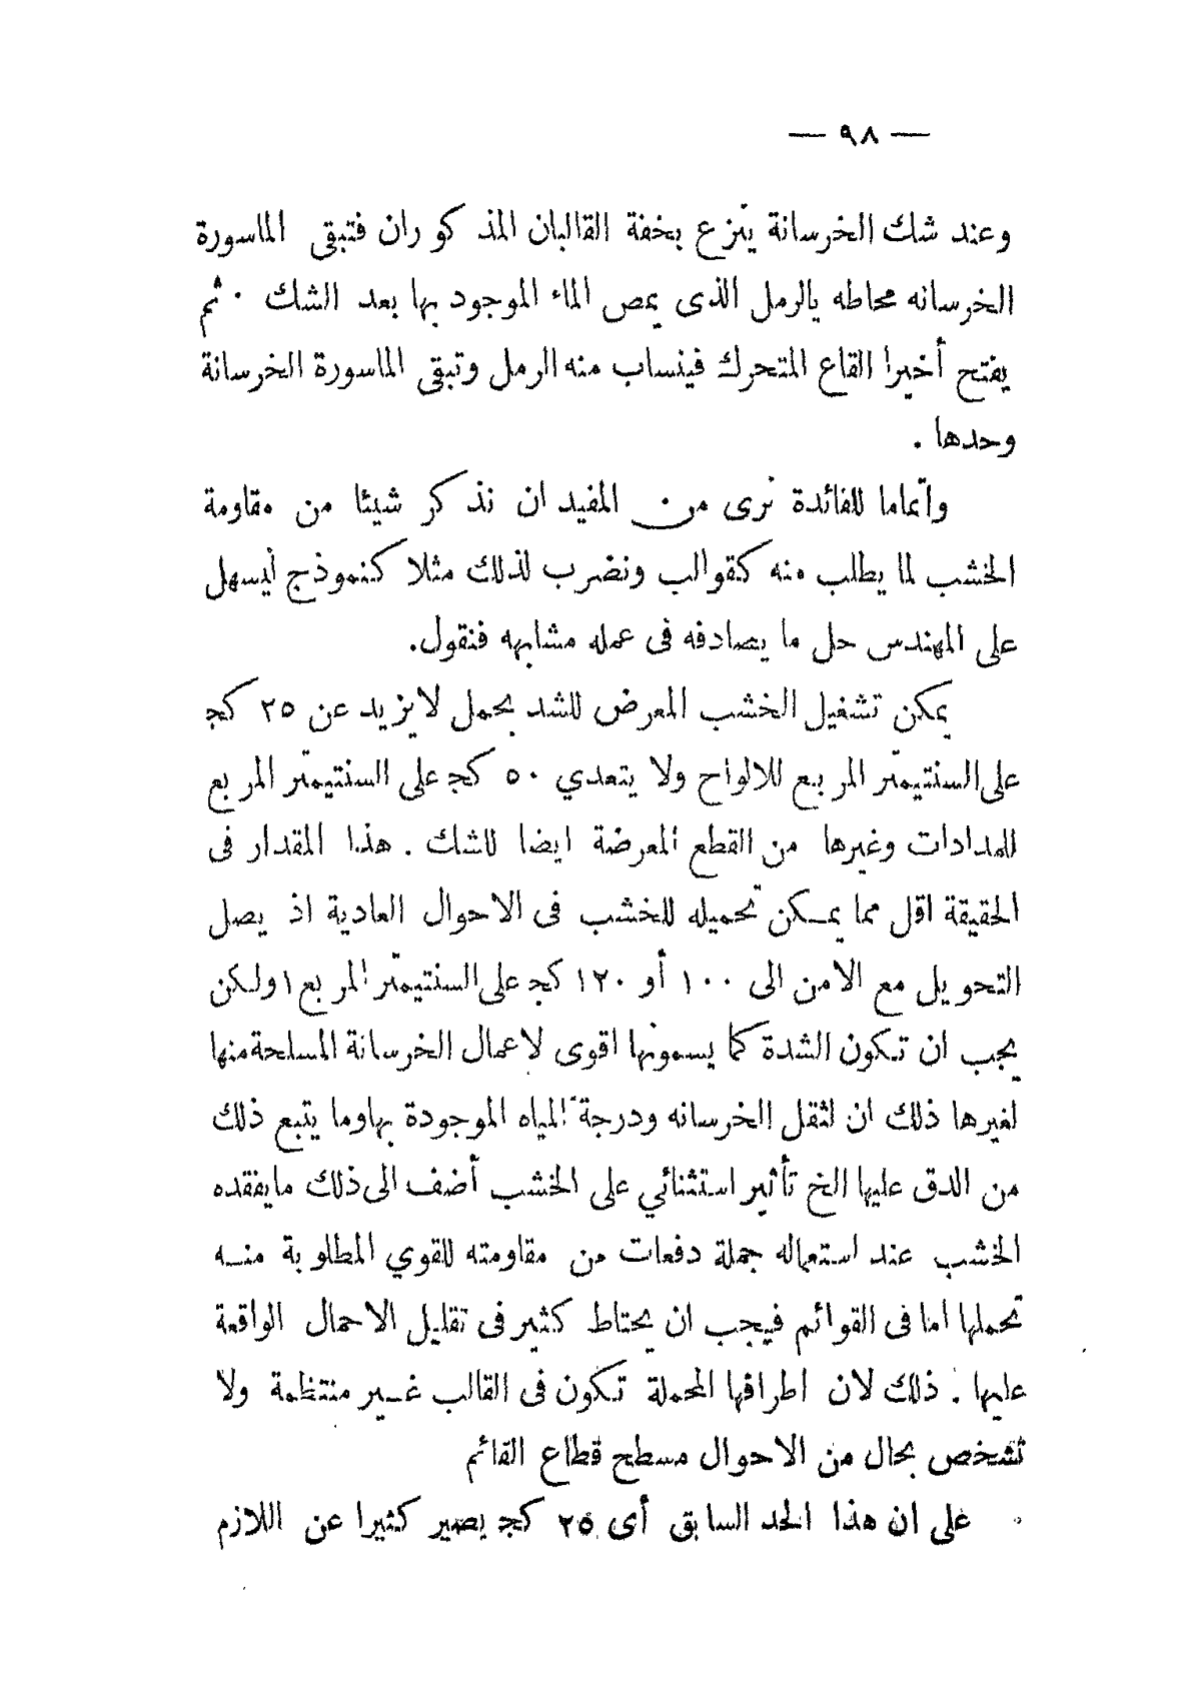 — ٩٨ —
وعند شك الخرسانة ينزع بخفة القالبان المذكوران فتبقى الماسورة
الخرسانه محاطه بالرمل الذى يمص الماء الموجود بها بعد الشك . ثم
يفتح أخيرا القاع المتحرك فينساب منه الرمل وتبقى الماسورة الخرسانة
وحدها .
واتماما للفائدة نرى من المفيد ان نذكر شيئا من مقاومة
الخشب لما يطلب منه كقوالب ونضرب لذلك مثلا كنموذج ليسهل
على المهندس حل ما يصادفه فى عمله مشابهه فنقول.
يمكن تشغيل الخشب المعرض للشد بحمل لايزيد عن ٢٥ كج
على السنتيمتر المربع للالواح ولا يتعدي ٥٠ كج على السنتيمتر المربع
للمدادات وغيرها من القطع المعرضة ايضا للشك . هذا المقدار فى
الحقيقة اقل مما يمكن تحميله للخشب فى الاحوال العادية اذ يصل
التحويل مع الامن الى ١٠٠ أو ١٢٠ كج على السنتيمتر المربع ١ ولكن
يجب ان تكون الشدة كما يسمونها اقوى لاعمال الخرسانة المسلحة منها
لغيرها ذلك ان لثقل الخرسانه ودرجة المياه الموجودة بها وما يتبع ذلك
من الدق عليها الخ تأثير استثنائي على الخشب أضف الى ذلك مايفقده
الخشب عند استعماله جملة دفعات من مقاومته للقوي المطلوبة منه
تحملها اما فى القوائم فيجب ان يحتاط كثير فى تقليل الاحمال الواقعة
عليها . ذلك لان اطرافها المحملة تكون فى القالب غير منتظمة ولا
تشخص بحال من الاحوال مسطح قطاع القائم
على ان هذا الحد السابق أى ٢٥ كج يصير كثيرا عن اللازم